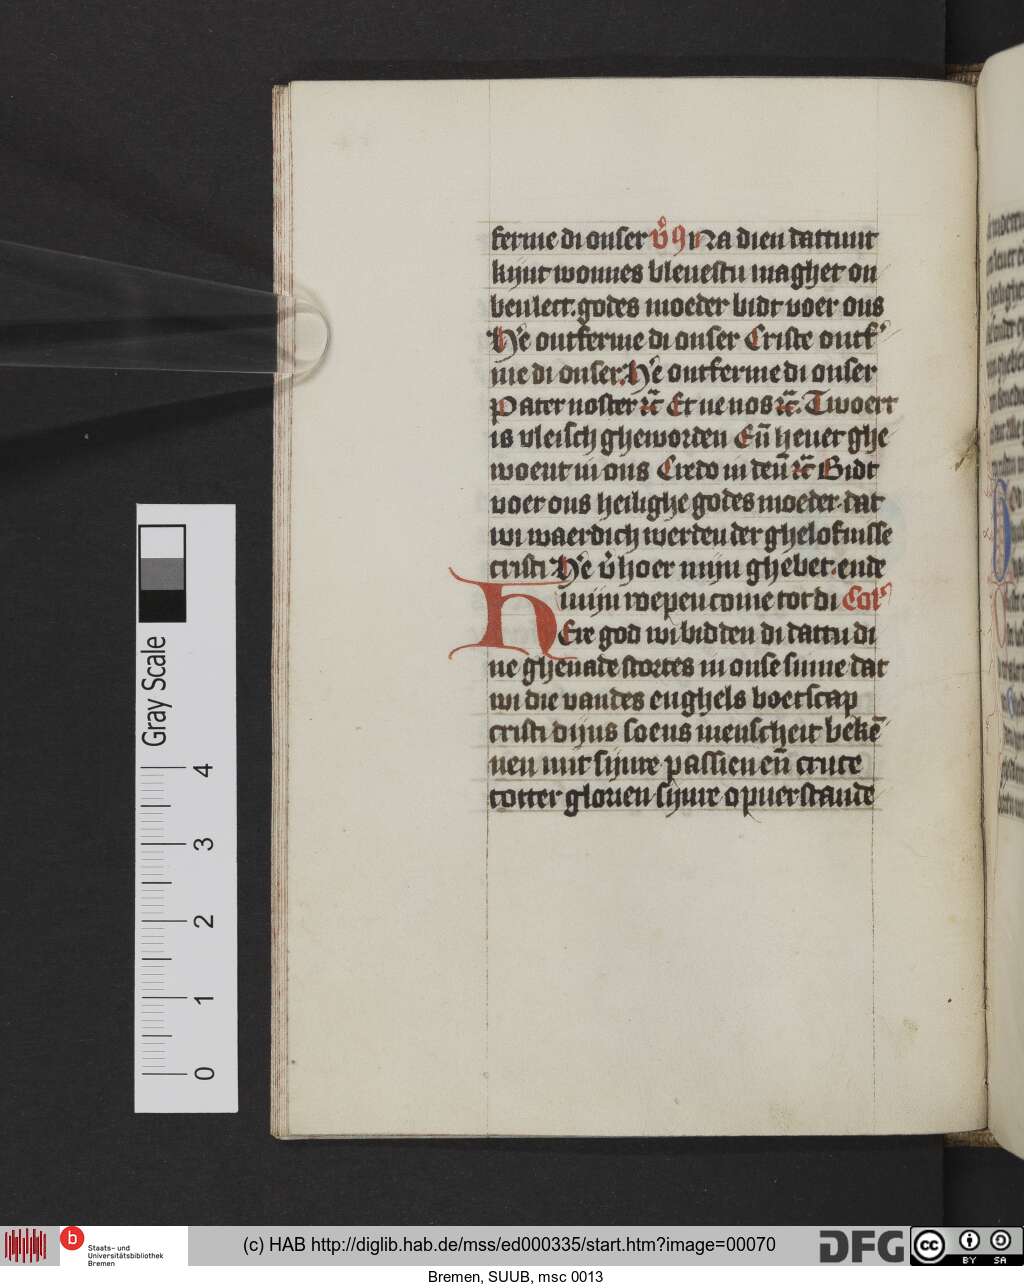 ferme di onser v̊ꝰ Na dien dattuut
kijnt wonnes bleuestu maghet on
beulect. godes moeder bidt voer ons
H'e ontferme di onser Criste ontf'
me di onser. H'e ontferme di onser
Pater noster ⁊c̄ Et ne nos ⁊c̄. Twoert
is vleisch gheworden En̄ heuet ghe
woent in ons Credo in deū ⁊c̄ Bidt
voer ons heilighe godes moeder. dat
wi waerdich werden der ghelofnisse
cristi H'e v̊hoer mijn ghebet. ende
mijn roepen come tot di Col'
HEre god wi bidden di dattu di
ne ghenade stortes in onse sinne dat
wi die vandes enghels boetscap
cristi dijns soens menscheit bekē
nen mit sijnre passien en̄ cruce
totter glorien sijnre opuerstande
Gray Scale
4
3
2
1
0
b
Staats- und
Universitätsbibliothek
Bremen
(c) HAB http://diglib.hab.de/mss/ed000335/start.htm?image=00070
DFG
cc
BY SA
Bremen, SUUB, msc 0013